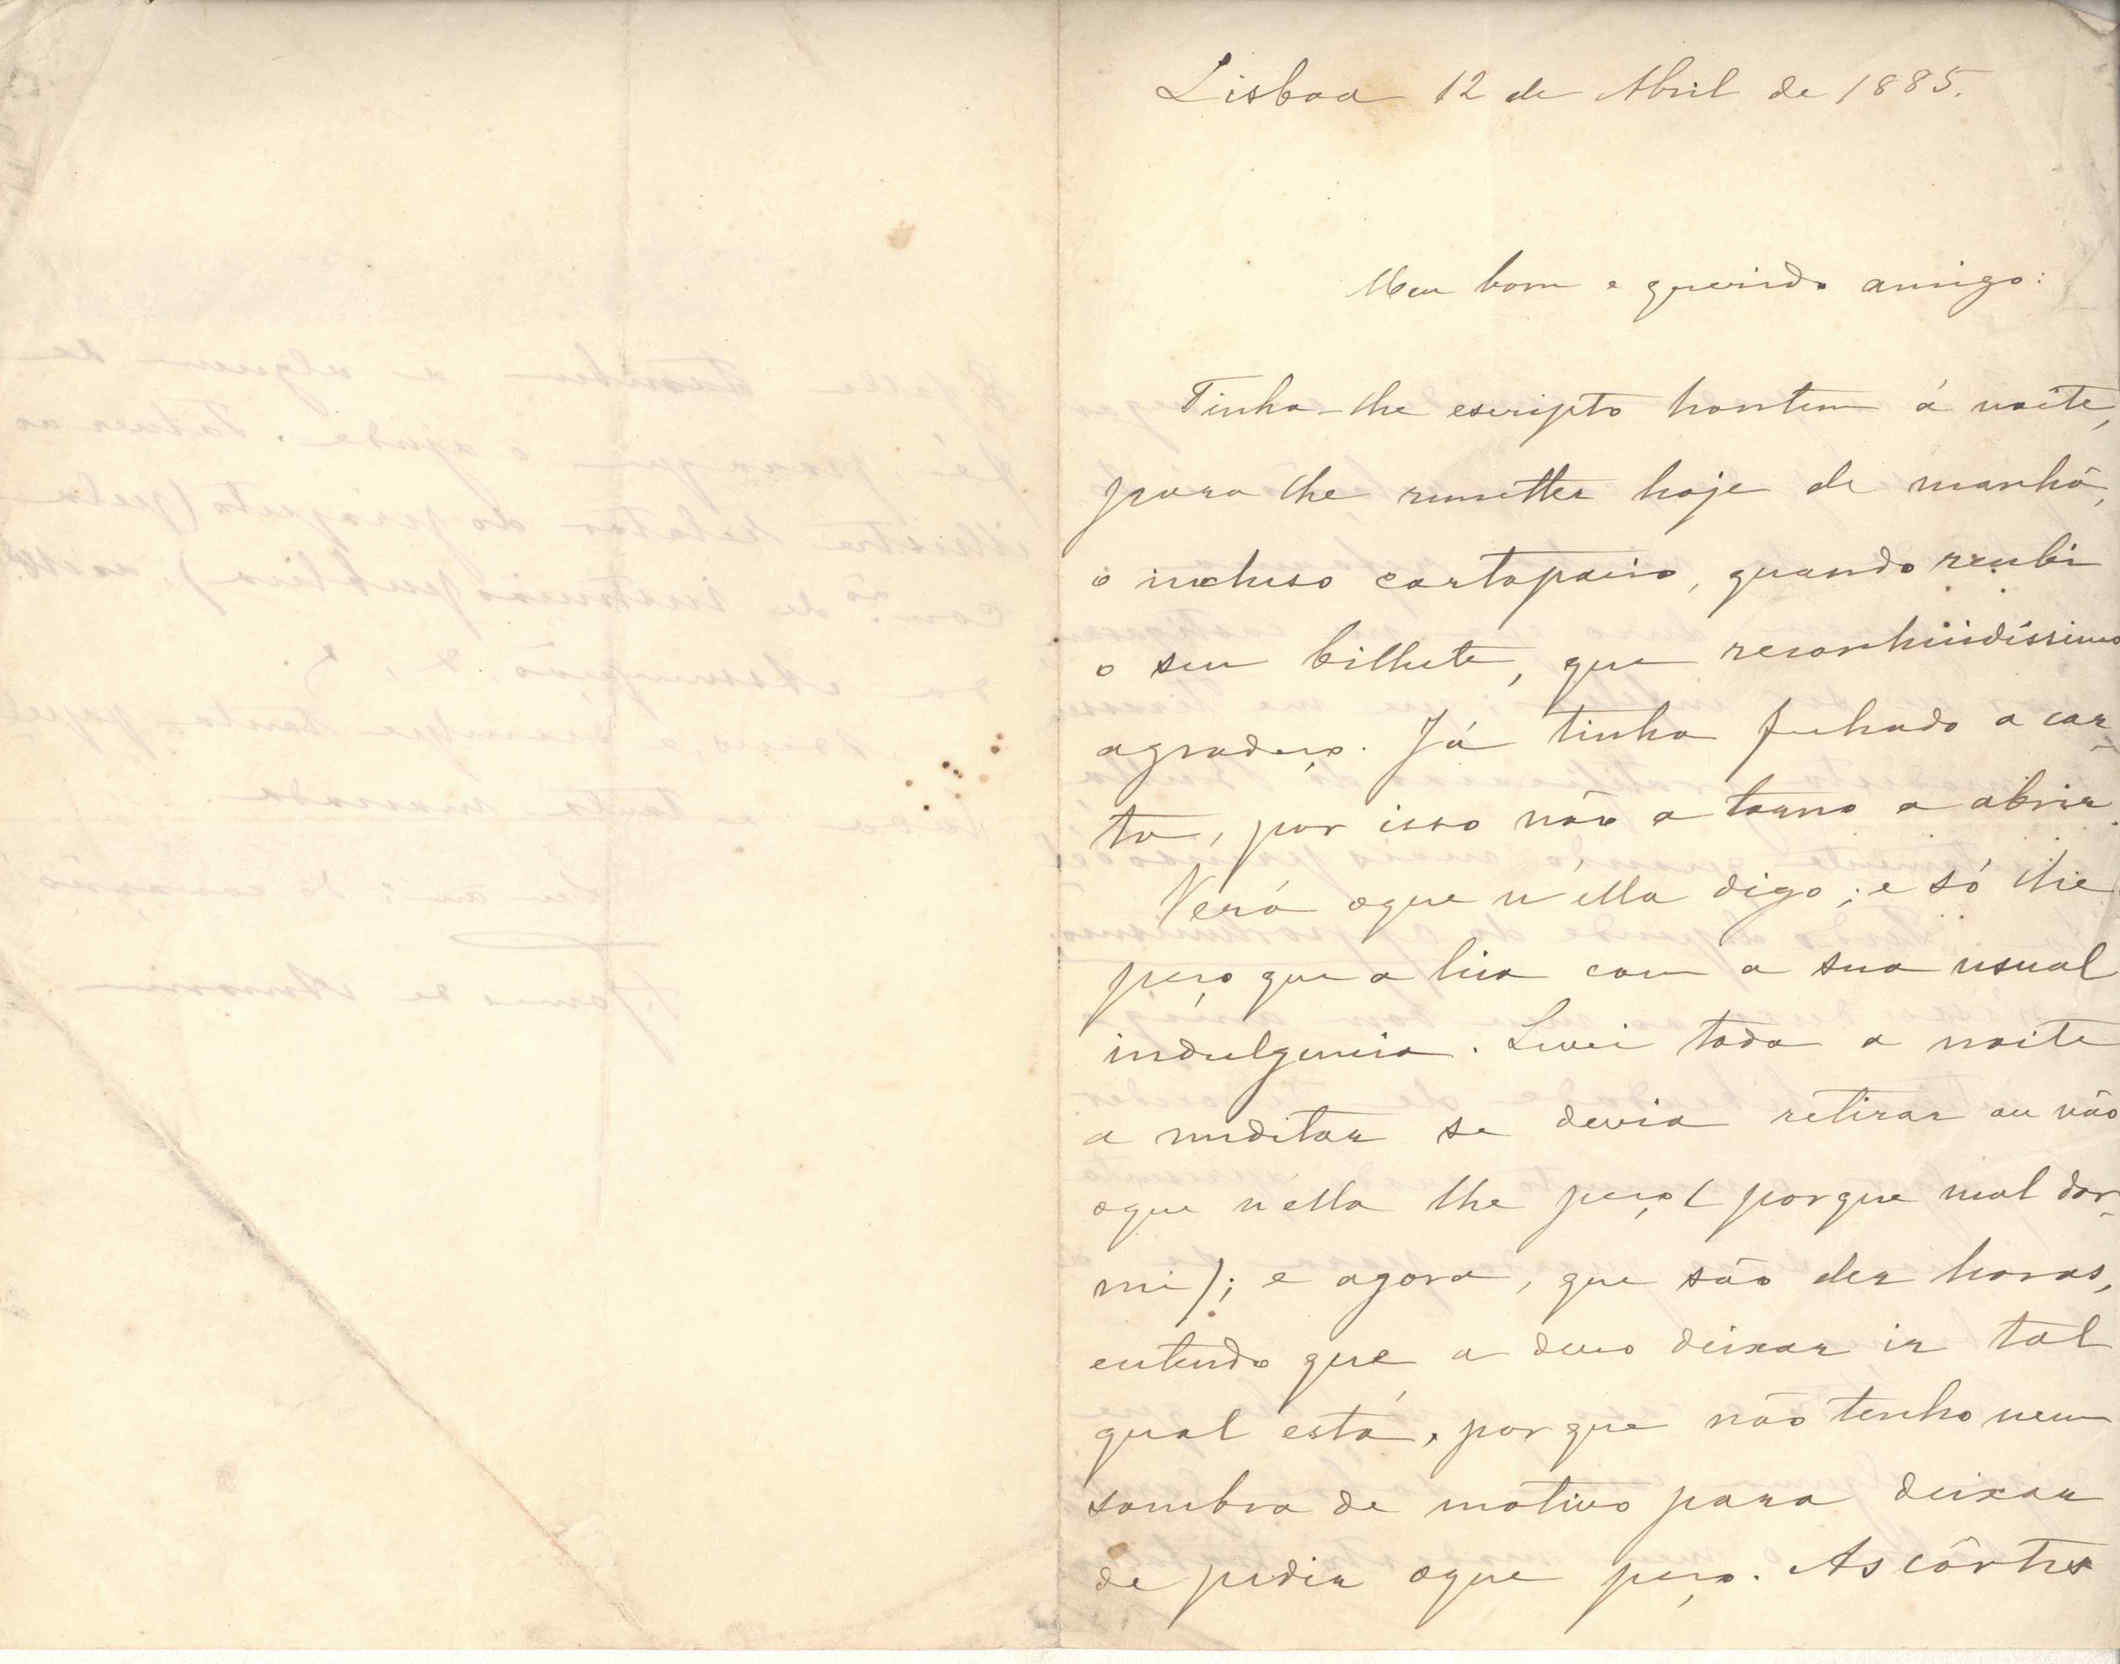 Lisboa 12 de Abril de 1885.
Meu bom e querido amigo:
Tinha-lhe escripto hontem á noite,
para lhe remetter hoje de manhã,
o incluso cartapacio, quando recebi
o seu bilhete, que reconhecidissimo
agradeço. Já tinha fechado a car-
ta, por isso não a torno a abrir.
Verá oque n'ella digo; e só lhe
peço que a leia com a sua usual
indulgencia. Levei toda a noite
a meditar se devia retirar ou não
oque n'ella lhe peço (porque mal dor-
mi); e agora, que são dez horas,
entendo que a devo deixar ir tal
qual está, porque não tenho nem
sombra de motivo para deixar
de pedir oque peço. As côrtes